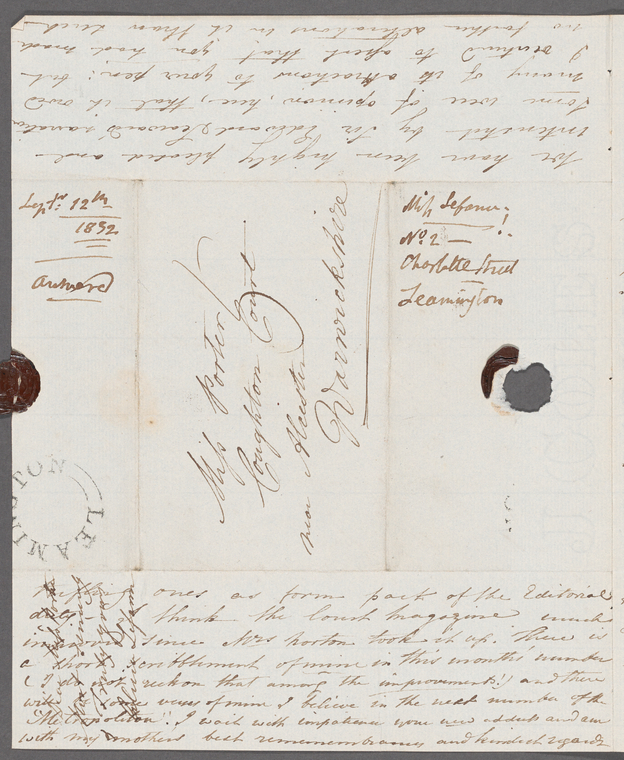 We have been highly pleased and
interested by Sir Edward Seaward's narrative
some were of opinion, here, that it owed
many of its attractions to your pen: but
I ventured to assert that you had made
no further alterations in it than such
trifling ones as form part of the Editorial
duty. I think the Court Magazine much
improved since Mrs Norton took it up. there is
a short scribblement of mine in this months number
(I do not reckon that among the improvements!) and there
will be some verses of mine I believe in the next number of the
"Metropolitan". I wait with impatience your new address and am
with my mothers best remembrances and kindest regards
Septbr. 12th
1832
answered
Miss Porter
Coughton Court
near Alcester
Warwickshire
Miss Lefanu:
No. 2
Charlotte Street
Leamington
LEAMINGTON